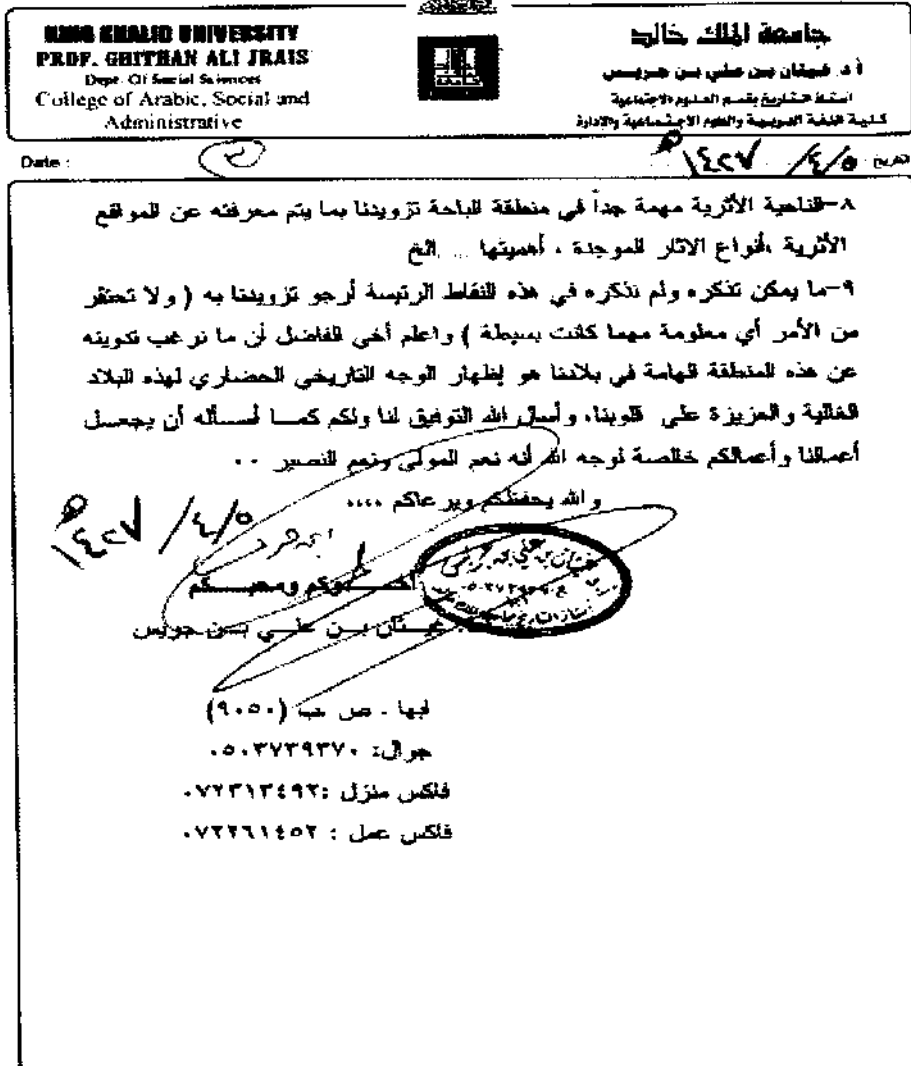 KING KHALID UNIVERSITY
PROF. GHITHAN ALI JRAIS
Dept. Of Social Sciences
College of Arabic, Social and
Administrative
جامعة الملك خالد
أ د. غيثان بن علي بن جريس
استاذ التاريخ بقسم العلوم الاجتماعية
كلية اللغة العربية والعلوم الاجتماعية والادارة
Date :
٢
التاريخ ٥/٤/١٤٢٧
٨-الناحية الأثرية مهمة جداً في منطقة الباحة تزويدنا بما يتم معرفته عن المواقع
الأثرية ،أنواع الاثار الموجدة ، أهميتها ... الخ
٩-ما يمكن تذكره ولم نذكره في هذه النقاط الرئيسة أرجو تزويدنا به ( ولا تحتقر
من الأمر أي معلومة مهما كانت بسيطة ) واعلم أخي الفاضل أن ما نرغب تدوينه
عن هذه المنطقة الهامة في بلادنا هو إظهار الوجه التاريخي الحضاري لهذه البلاد
الغالية والعزيزة على قلوبنا، وأسال الله التوفيق لنا ولكم كما أسأله أن يجعل
أعمالنا وأعمالكم خالصة لوجه الله أنه نعم المولى ونعم النصير ..
والله يحفظكم ويرعاكم ....
٥/٤/١٤٢٧
أخوكم ومحبكم
غيثان بن علي بن جريس
ابها - ص ب (٩٠٥٠)
جوال: ٠٥٠٣٧٣٩٣٧٠
فاكس منزل :٠٧٢٣١٣٤٩٢
فاكس عمل : ٠٧٢٢٦١٤٥٢